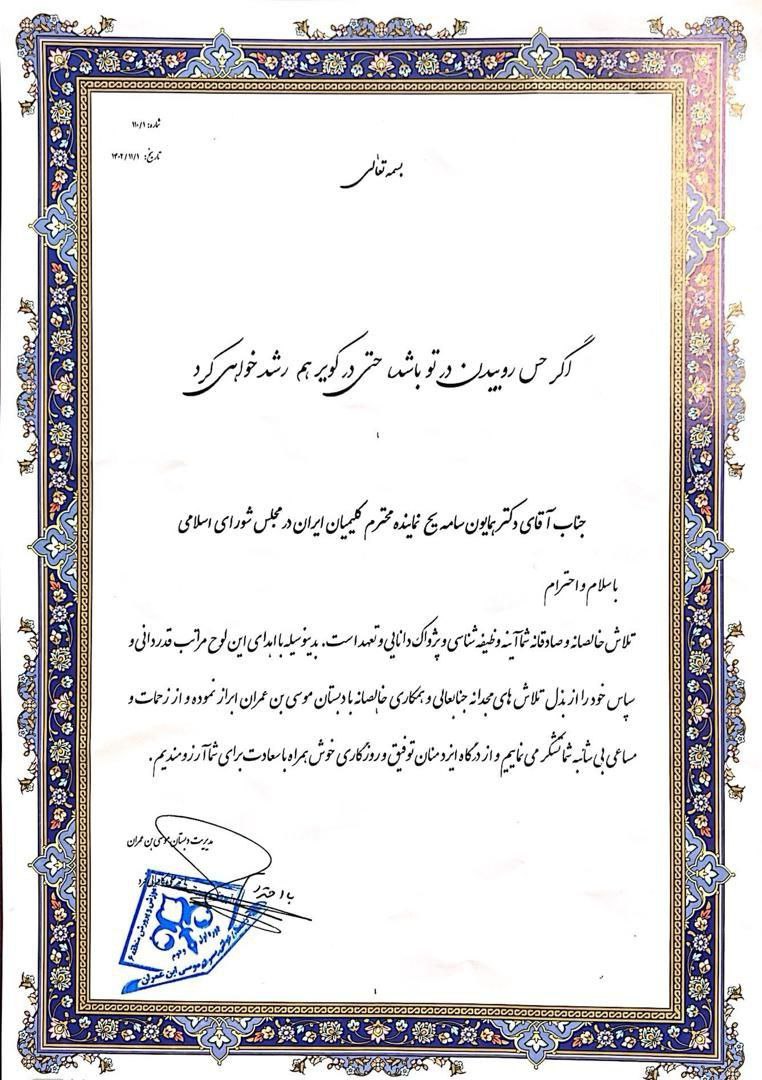 شماره: ۱۱۰/۱
تاریخ: ۱۴۰۲/۱۱/۱
بسمه تعالی
اگر حس روییدن در تو باشد، حتی در کویر هم رشد خواهی کرد
جناب آقای دکتر همایون سامه یح نماینده محترم کلیمیان ایران در مجلس شورای اسلامی
باسلام و احترام
تلاش خالصانه و صادقانه شما آینه وظیفه شناسی و پژواک دانایی و تعهد است. بدینوسیله با اهدای این لوح مراتب قدردانی و
سپاس خود را از بذل تلاش های مجدانه جنابعالی و همکاری خالصانه با دبستان موسی بن عمران ابراز نموده و از زحمات و
مساعی بی شائبه شما تشکر می نماییم و از درگاه ایزد منان توفیق و روزگاری خوش همراه با سعادت برای شما آرزومندیم.
مدیریت دبستان موسی بن عمران
با احترام
آموزش و پرورش منطقه ۶
دوره اول و دوم
موسی ابن عمران